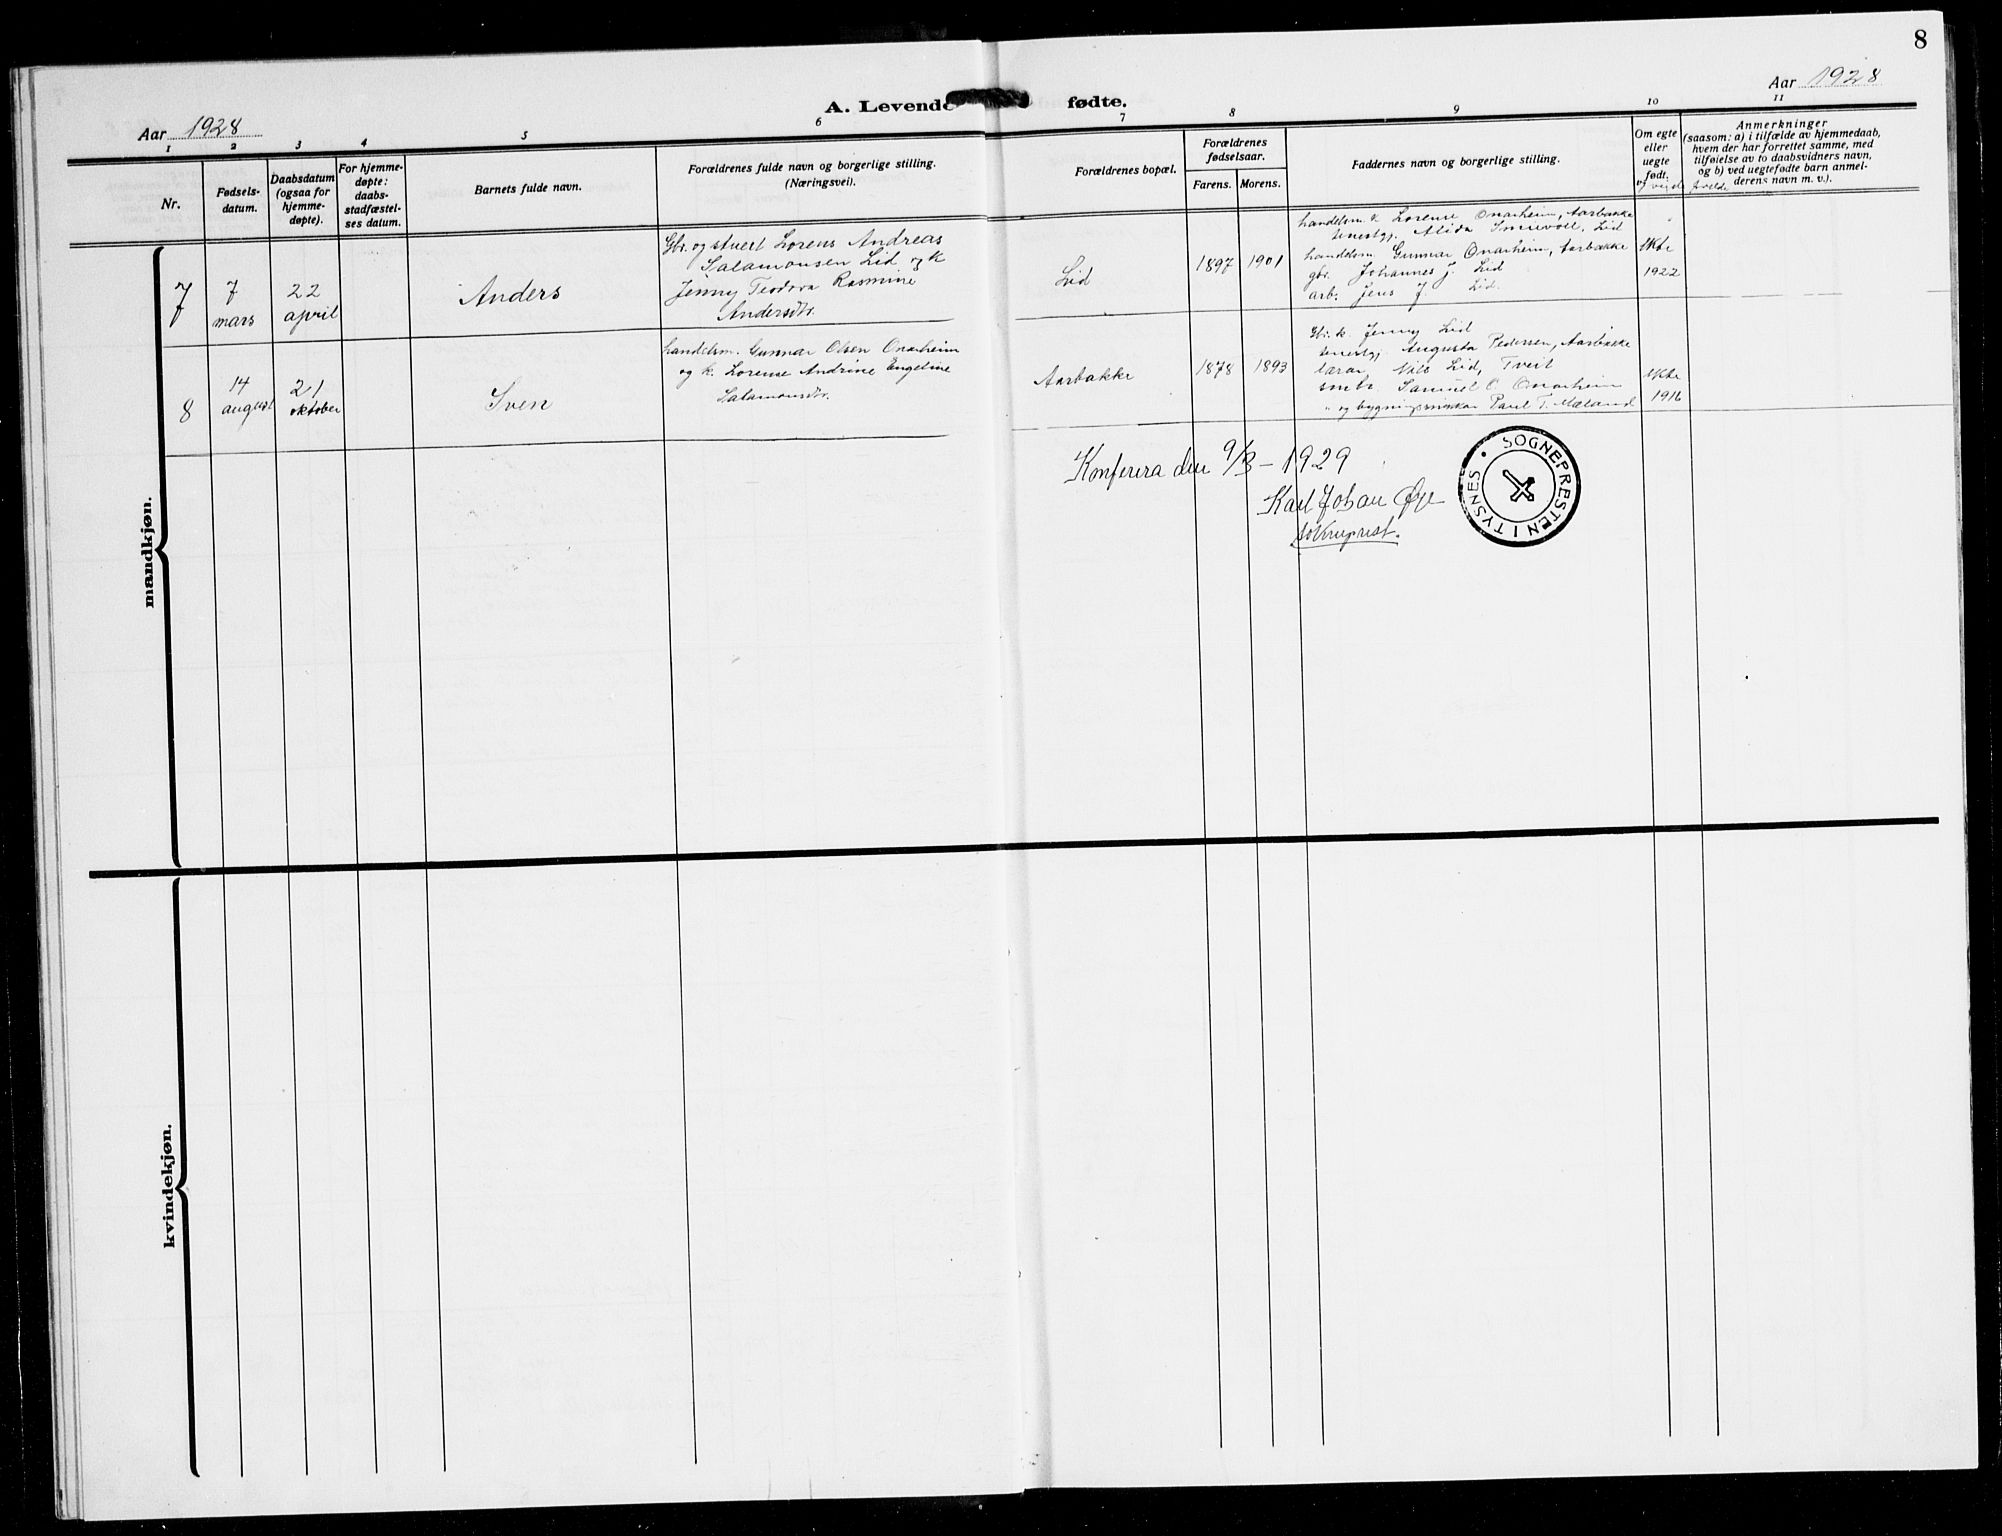 8
Aar 1928
A. Levende fødte.
Aar 1928
1 2 3 4 5 6 7 8 9 10 11
Nr.
Fødsels-
datum.
Daabsdatum
(ogsaa for
hjemme-
døpte).
For hjemme-
døpte:
daabs-
stadfæstel-
ses datum.
Barnets fulde navn.
Forældrenes fulde navn og borgerlige stilling.
(Næringsvei).
Forældrenes bopæl.
Forældrenes
fødselsaar.
Farens. Morens.
Faddernes navn og borgerlige stilling.
Om egte
eller
uegte
født.
Anmerkninger
(saasom: a) i tilfælde av hjemmedaab,
hvem der har forrettet samme, med
tilføielse av to daabsvidners navn,
og b) ved uegtefødte barn anmel-
derens navn m. v.).
mandkjøn.
7
7
mars
22
april
Anders
Gbr. og stuert Lorens Andreas
Salamonsen Lid og k
Jenny Teodora Rasmine
Andersdtr.
Lid
1897 1901
handelsm. k. Lorense Onarheim, Aarbakke
tenestgj. Alida Lid
handelsm. Gunnar Onarheim, Aarbakke
gbr. Johannes J. Lid
arb. Jens J. Lid.
ekte
1922
8
14
august
21
oktober
Sven
handelsm. Gunnar Olsen Onarheim
og k. Lorense Andrine Engeline
Salamonsdtr.
Aarbakke
1878 1893
Gbr. k. Jenny Lid
tenestgj. Augusta Pedersen, Aarbakke
lærar Nils Lid, Tveit
Samuel O. Onarheim
" og Paul T. Mæland
ekte
1916
Konferera den 9/3 - 1929
Karl Johan Øye
sokneprest.
SOGNEPRESTEN I TYSNES
kvindekjøn.